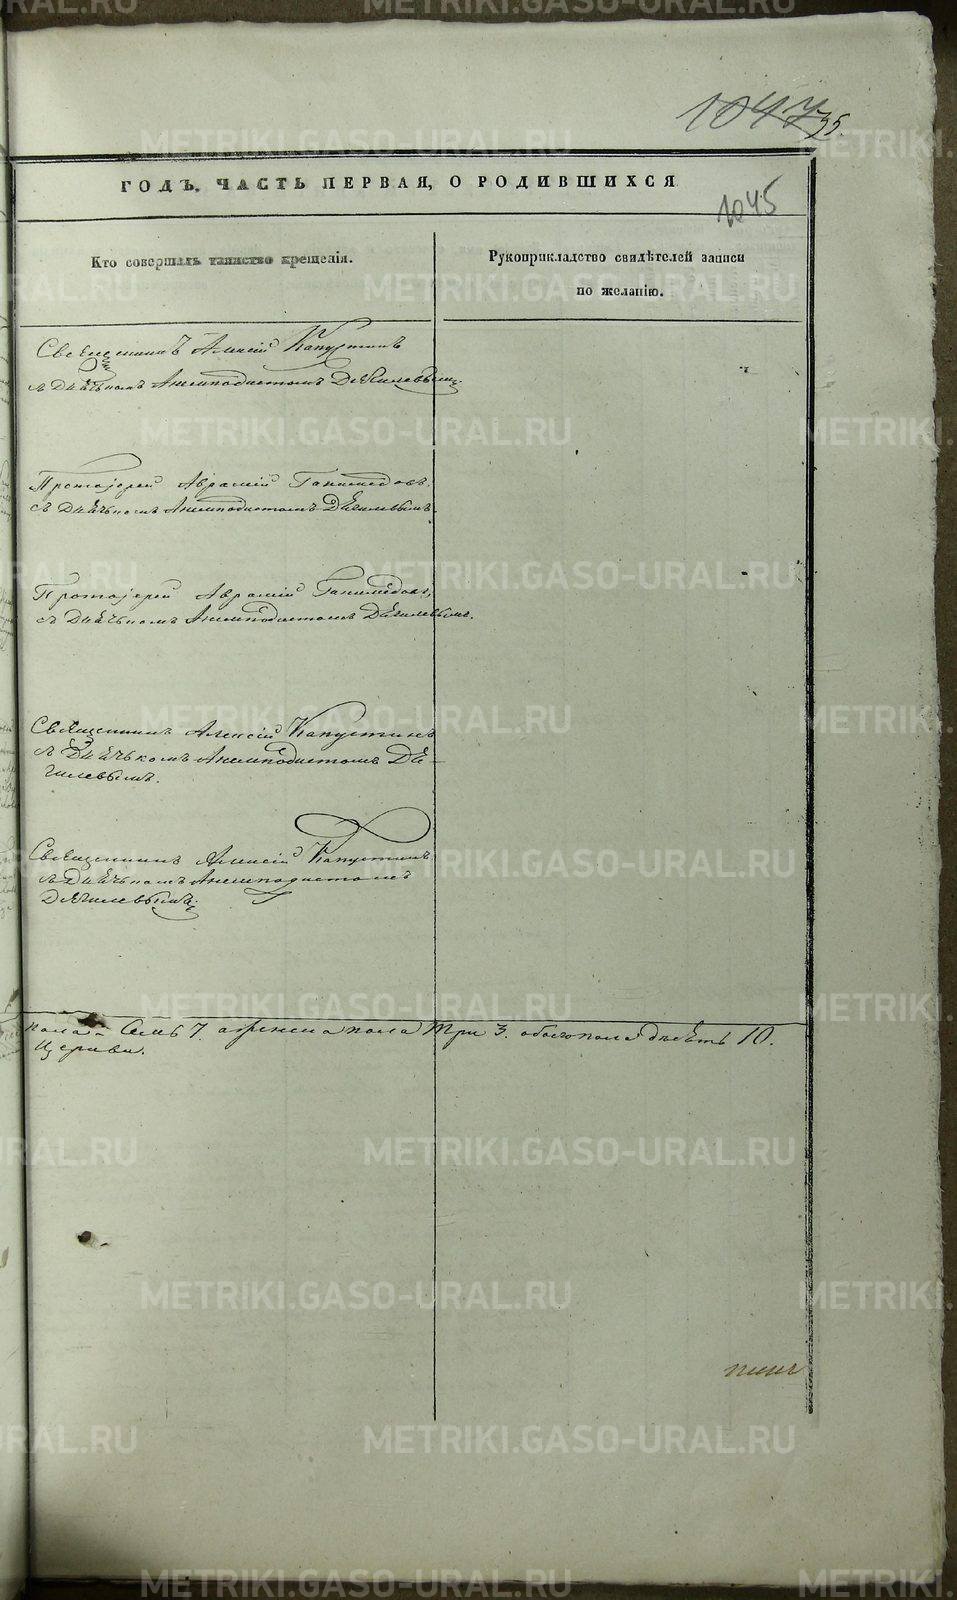 1047
35.
ГОДЪ. ЧАСТЬ ПЕРВАЯ, О РОДИВШИХСЯ
1045
Кто совершалъ таинство крещенія.
Рукоприкладство свидѣтелей записи
по желанію.
Священникъ Алексій Капустинъ
съ Дьячькомъ Анемподистомъ Дягилевымъ.
Протоіерей Аврамій Ганимедовъ
съ Дьячькомъ Анемподистомъ Дягилевымъ.
Протоіерей Аврамій Ганимедовъ,
съ Дьячькомъ Анемподистомъ Дягилевымъ.
Священникъ Алексій Капустинъ
съ Дьячькомъ Анемподистомъ Дя-
гилевымъ.
Священникъ Алексій Капустинъ
съ Дьячькомъ Анемподистомъ
Дягилевымъ.
пола Семь 7. а женска пола Три 3. обоего пола десять 10.
Церкви.
METRIKI.GASO-URAL.RU